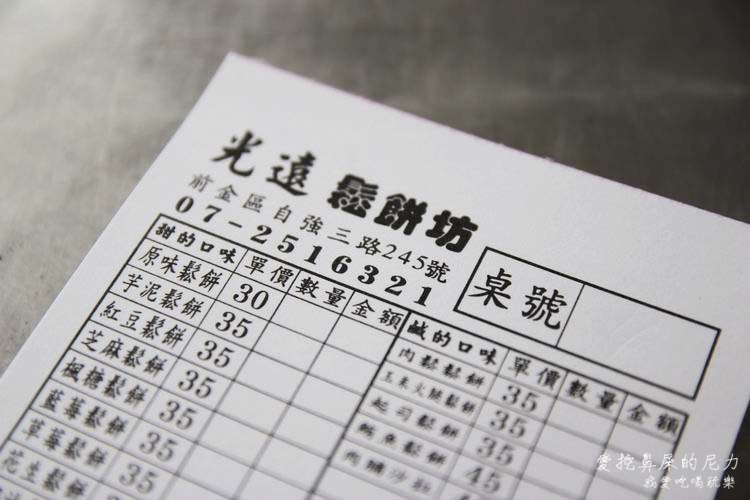 光遠 鬆餅坊
前金區自強三路245號
07-2516321
桌號
甜的口味 單價 數量 金額
原味鬆餅 30
芋泥鬆餅 35
紅豆鬆餅 35
芝麻鬆餅 35
楓糖鬆餅 35
藍莓鬆餅 35
草莓鬆餅 35
花生鬆餅
鹹的口味 單價 數量 金額
肉鬆鬆餅 35
玉米火腿鬆餅 35
起司鬆餅 35
鮪魚鬆餅 45
愛挖鼻屎的尼力
我愛吃喝玩樂